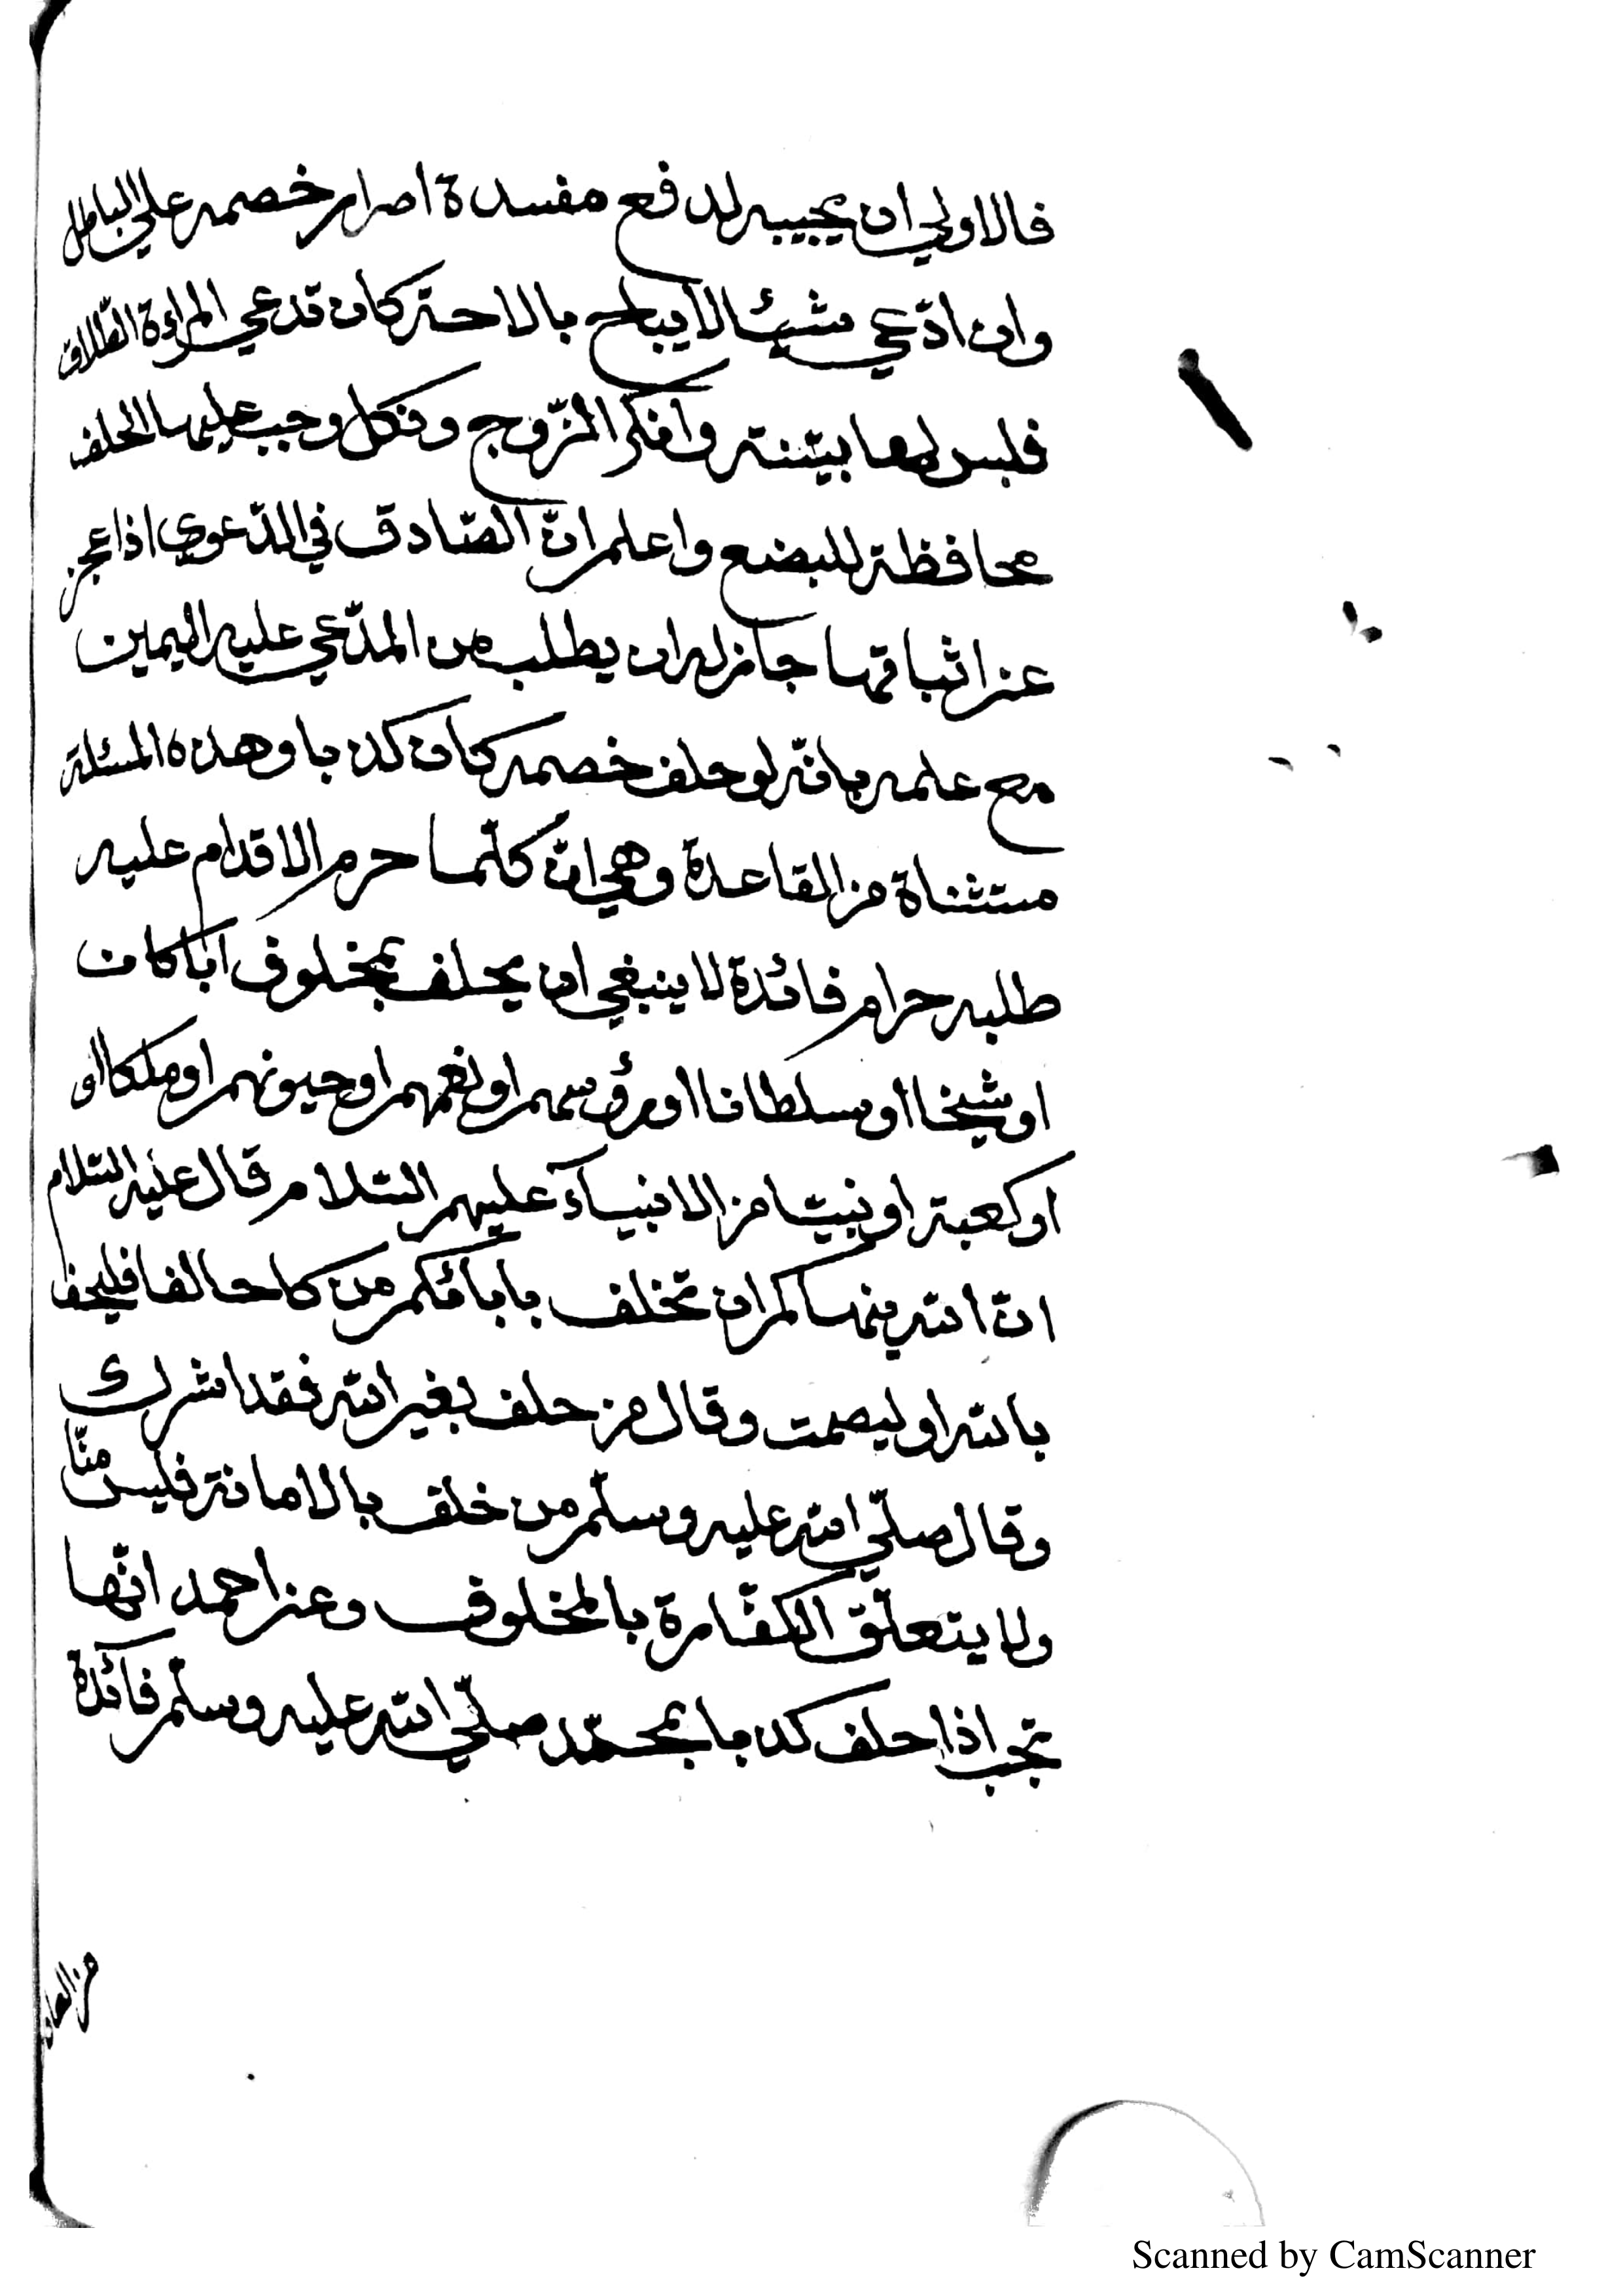 فالاولي ان يجيبه لدفع مفسدة اصرار خصمه علي الباطل
وان ادّعي شيئا لا يباح بالاحة كان تدعي المراءة الطّلاق
فليس لها بيّنة وانكر الزّوج ونكل وجب عليها الحلف
محافظة للبضع واعلم انّ الصّادق في الدّعوي اذا عجز
عن اثباتها جاز له ان يطلب من المدّعي عليه اليمين
مع علمه بانّه لو حلف خصمه كان كذبا وهذه المسئلة
مستثناة من القاعدة وهي انّ كلّما حرم الاقدام عليه
طلبه حرام فائدة لا ينبغي ان يحلف بمخلوق ابا كان
او شيخا او سلطانا او رؤسهم او نغمهم او حيوتهم او ملكا او
او كعبة او نبيّا من الانبياء عليهم السّلام قال عليه السّلام
انّ الله ينهاكم ان تخلف بابائكم من كا حالفا فليحف
بالله او ليصمت وقال من حلف بغير الله فقد اشرك
وقال صلّي الله عليه وسلّم من خلف بالامانة فليس منّا
ولا يتعلّق الكفّارة بالمخلوق وعن احمد انّها
تجب اذا حلف كذبا بمحمّد صلّي الله عليه وسلّم فائدة
Scanned by CamScanner